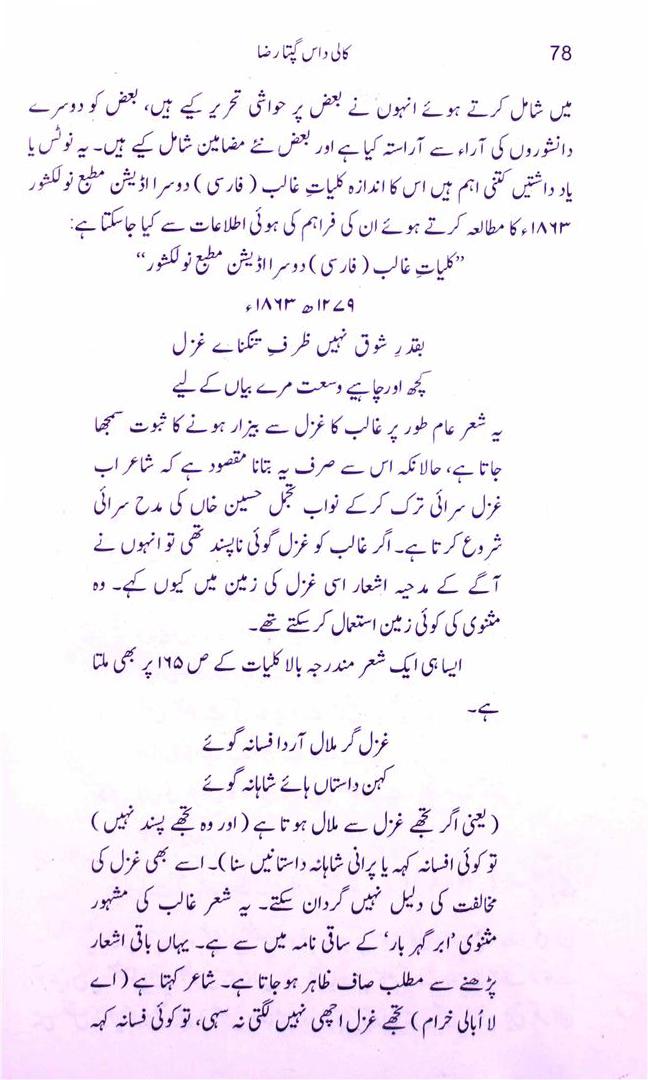 78
کالی داس گپتا رضا
میں شامل کرتے ہوئے انہوں نے بعض پر حواشی تحریر کیے ہیں، بعض کو دوسرے
دانشوروں کی آراء سے آراستہ کیا ہے اور بعض نئے مضامین شامل کیے ہیں۔ یہ نوٹس یا
یاد داشتیں کتنی اہم ہیں اس کا اندازہ کلیاتِ غالب (فارسی) دوسرا اڈیشن مطبع نولکشور
۱۸۶۳ء کا مطالعہ کرتے ہوئے ان کی فراہم کی ہوئی اطلاعات سے کیا جاسکتا ہے:
”کلیاتِ غالب (فارسی) دوسرا اڈیشن مطبع نولکشور“
۱۲۷۹ھ ۱۸۶۳ء
بقدرِ شوق نہیں ظرفِ تنگنائے غزل
کچھ اور چاہیے وسعت مرے بیاں کے لیے
یہ شعر عام طور پر غالب کا غزل سے بیزار ہونے کا ثبوت سمجھا
جاتا ہے، حالانکہ اس سے صرف یہ بتانا مقصود ہے کہ شاعر اب
غزل سرائی ترک کرکے نواب تجمل حسین خاں کی مدح سرائی
شروع کرتا ہے۔ اگر غالب کو غزل گوئی ناپسند تھی تو انہوں نے
آگے کے مدحیہ اشعار اسی غزل کی زمین میں کیوں کہے۔ وہ
مثنوی کی کوئی زمین استعمال کرسکتے تھے۔
ایسا ہی ایک شعر مندرجہ بالا کلیات کے ص ۱۶۵ پر بھی ملتا
ہے۔
غزل گر ملال آردا فسانہ گوئے
کہن داستاں ہائے شاہانہ گوئے
(یعنی اگر تجھے غزل سے ملال ہوتا ہے (اور وہ تجھے پسند نہیں)
تو کوئی افسانہ کہہ یا پرانی شاہانہ داستانیں سنا)۔ اسے بھی غزل کی
مخالفت کی دلیل نہیں گردان سکتے۔ یہ شعر غالب کی مشہور
مثنوی ’ابر گہر بار‘ کے ساقی نامہ میں سے ہے۔ یہاں باقی اشعار
پڑھنے سے مطلب صاف ظاہر ہوجاتا ہے۔ شاعر کہتا ہے (اے
لا اُبالی خرام) تجھے غزل اچھی نہیں لگتی نہ سہی، تو کوئی فسانہ کہہ